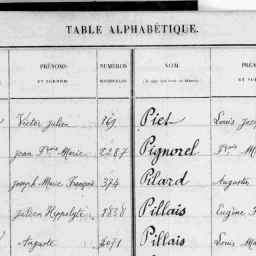 TABLE ALPHABÉTIQUE.
PRÉNOMS NUMÉROS NOM PRÉ
ET SURNOM
Victor Julien 169 Piet Louis Jos
Jean Fçois Marie 2287 Pignorel Fçois Ma
Joseph Marie François 374 Pilard Auguste
Julien Hippolyte 1838 Pillais Eugène F
Auguste 2071 Pillais Louis Ma